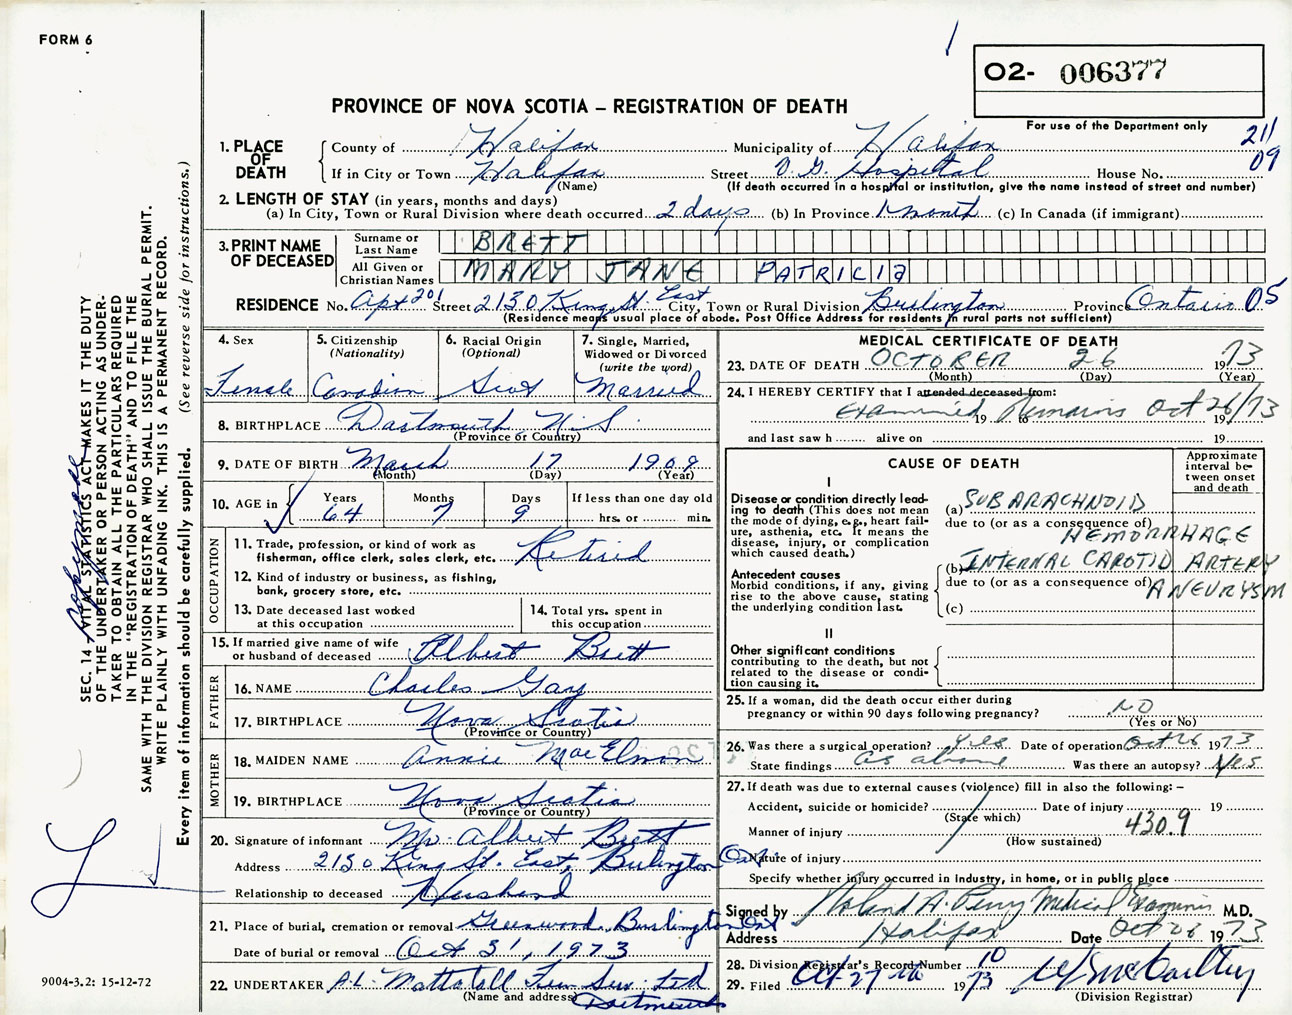 FORM 6
02- 006377
For use of the Department only
PROVINCE OF NOVA SCOTIA – REGISTRATION OF DEATH
211
09
1. PLACE OF DEATH
County of Halifax Municipality of Halifax
If in City or Town Halifax Street V.G. Hospital House No.
(Name) (If death occurred in a hospital or institution, give the name instead of street and number)
2. LENGTH OF STAY (in years, months and days)
(a) In City, Town or Rural Division where death occurred 2 days (b) In Province 1 month (c) In Canada (if immigrant)
3. PRINT NAME OF DECEASED
Surname or Last Name BRETT
All Given or Christian Names MARY JANE PATRICIA
RESIDENCE No. Apt 201 Street 2130 King St. East City, Town or Rural Division Burlington Province Ontario 05
(Residence means usual place of abode. Post Office Address for residents in rural parts not sufficient)
4. Sex
Female
5. Citizenship
(Nationality)
Canadian
6. Racial Origin
(Optional)
Scot
7. Single, Married,
Widowed or Divorced
(write the word)
Married
8. BIRTHPLACE Dartmouth N.S
(Province or Country)
9. DATE OF BIRTH March 17 1909
(Month) (Day) (Year)
10. AGE in
Years Months Days If less than one day old
64 7 9 hrs. or min.
OCCUPATION
11. Trade, profession, or kind of work as
fisherman, office clerk, sales clerk, etc. Retired
12. Kind of industry or business, as fishing,
bank, grocery store, etc.
13. Date deceased last worked
at this occupation
14. Total yrs. spent in
this occupation
15. If married give name of wife
or husband of deceased Albert Brett
FATHER
16. NAME Charles Gay
17. BIRTHPLACE Nova Scotia
(Province or Country)
MOTHER
18. MAIDEN NAME Annie
19. BIRTHPLACE Nova Scotia
(Province or Country)
20. Signature of informant Mr. Albert Brett
Address 2130 King St. East, Burlington Ont.
Relationship to deceased Husband
21. Place of burial, cremation or removal Greenwood, Burlington Ont
Date of burial or removal Oct 31, 1973
22. UNDERTAKER A.L. Mattatall Fun Ser. Ltd
(Name and address) Dartmouth
MEDICAL CERTIFICATE OF DEATH
23. DATE OF DEATH OCTOBER 26 1973
(Month) (Day) (Year)
24. I HEREBY CERTIFY that I attended deceased from:
examined 19 remains to Oct 26/73 19
and last saw h alive on 19
CAUSE OF DEATH
Approximate
interval be-
tween onset
and death
I
Disease or condition directly lead-
ing to death (This does not
mean the mode of dying, e.g., heart fail-
ure, asthenia, etc. It means the
disease, injury, or complication
which caused death.)
(a) SUBARACHNOID
due to (or as a consequence of)
HEMORRHAGE
Antecedent causes
Morbid conditions, if any, giving
rise to the above cause, stating
the underlying condition last.
(b) INTERNAL CAROTID ARTERY
due to (or as a consequence of) ANEURYSM
(c)
II
Other significant conditions
contributing to the death, but not
related to the disease or condi-
tion causing it.
25. If a woman, did the death occur either during
pregnancy or within 90 days following pregnancy? NO
(Yes or No)
26. Was there a surgical operation? Yes Date of operation Oct 26 1973
State findings as above Was there an autopsy? Yes
27. If death was due to external causes (violence) fill in also the following: –
Accident, suicide or homicide? Date of injury 19
(State which)
Manner of injury 430.9
(How sustained)
Nature of injury
Specify whether injury occurred in industry, in home, or in public place
Signed by Roland A. Perry Medical Examiner M.D.
Address Halifax Date Oct 26 1973
28. Division Registrar's Record Number 10
29. Filed Oct 27th 1973
(Division Registrar)
SEC. 14 VITAL STATISTICS ACT MAKES IT THE DUTY
OF THE UNDERTAKER OR PERSON ACTING AS UNDER-
TAKER TO OBTAIN ALL THE PARTICULARS REQUIRED
IN THE "REGISTRATION OF DEATH" AND TO FILE THE
SAME WITH THE DIVISION REGISTRAR WHO SHALL ISSUE THE BURIAL PERMIT.
WRITE PLAINLY WITH UNFADING INK. THIS IS A PERMANENT RECORD.
Every item of information should be carefully supplied. (See reverse side for instructions.)
9004-3.2: 15-12-72